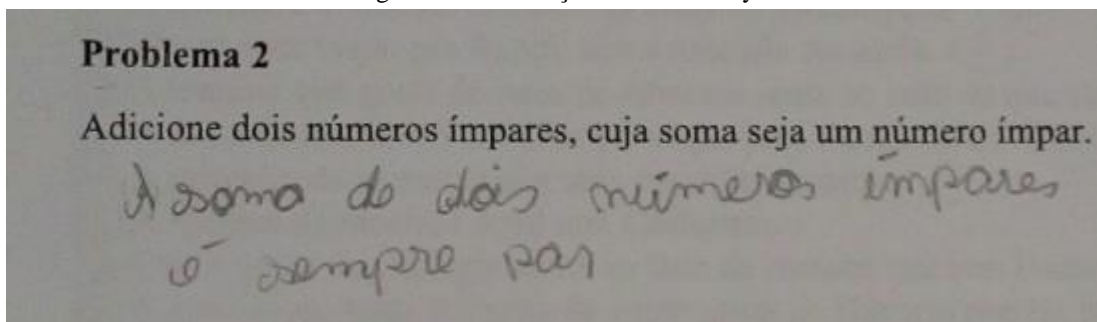 Problema 2
Adicione dois números ímpares, cuja soma seja um número ímpar.
A soma de dois números ímpares
é sempre par